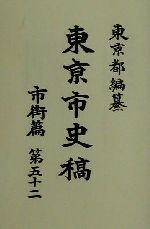 東京都編纂
東京市史稿
市街篇 第五十二